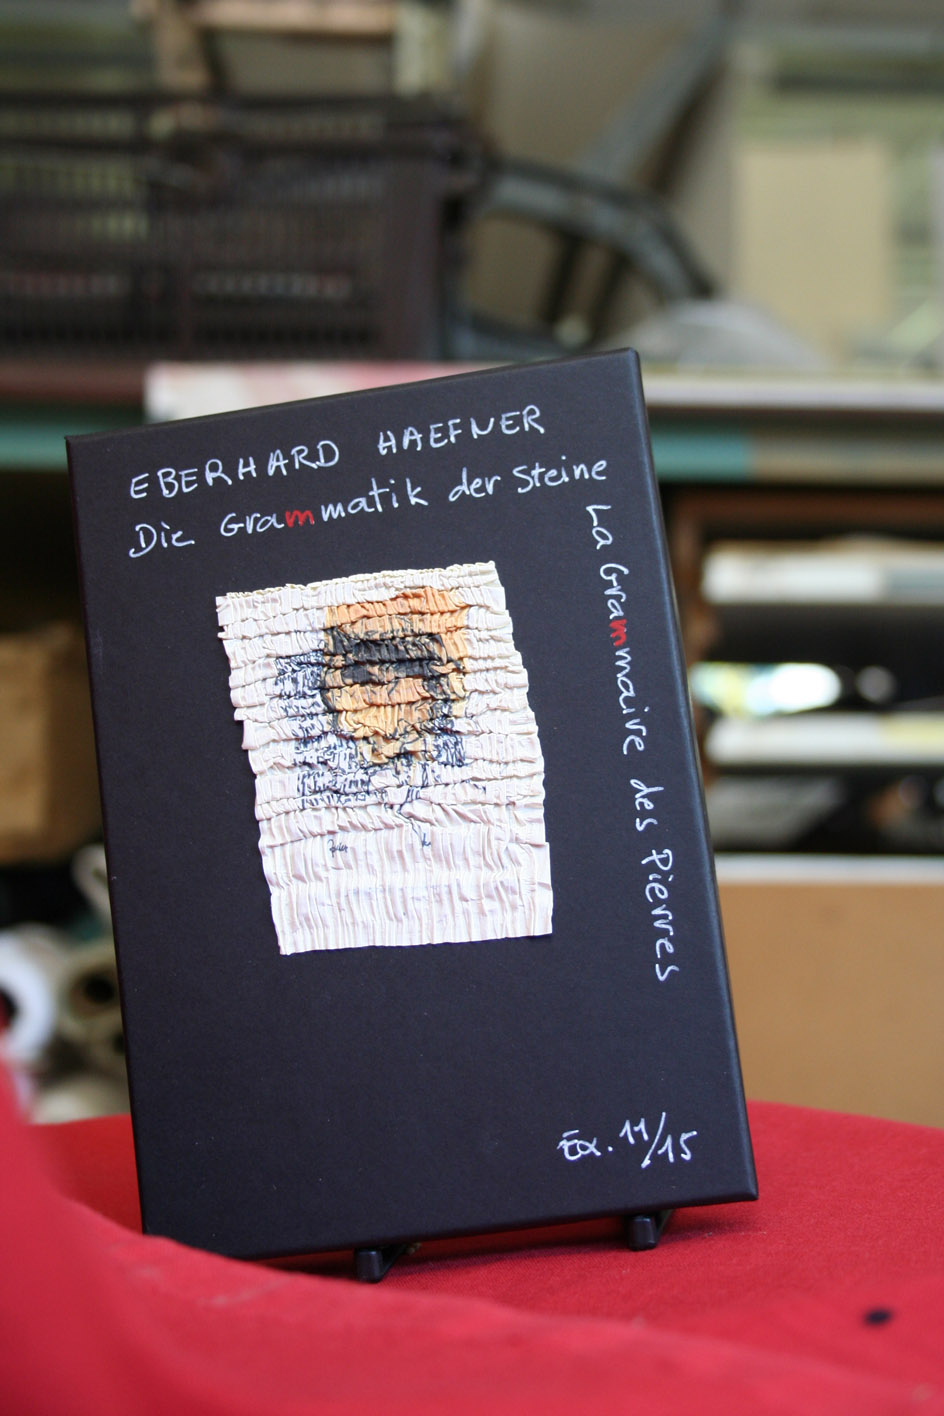 EBERHARD HAEFNER
Die Grammatik der Steine
La Grammaire des Pierres
Ex. 11/15